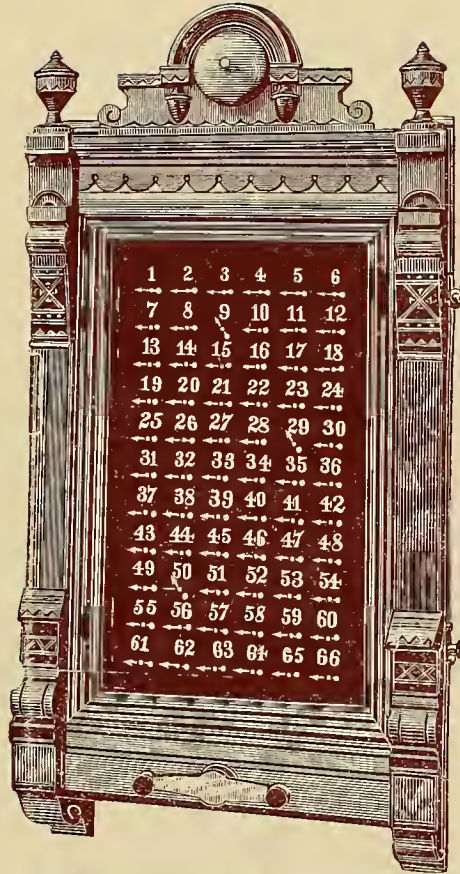 1 2 3 4 5 6
7 8 9 10 11 12
13 14 15 16 17 18
19 20 21 22 23 24
25 26 27 28 29 30
31 32 33 34 35 36
37 38 39 40 41 42
43 44 45 46 47 48
49 50 51 52 53 54
55 56 57 58 59 60
61 62 63 64 65 66